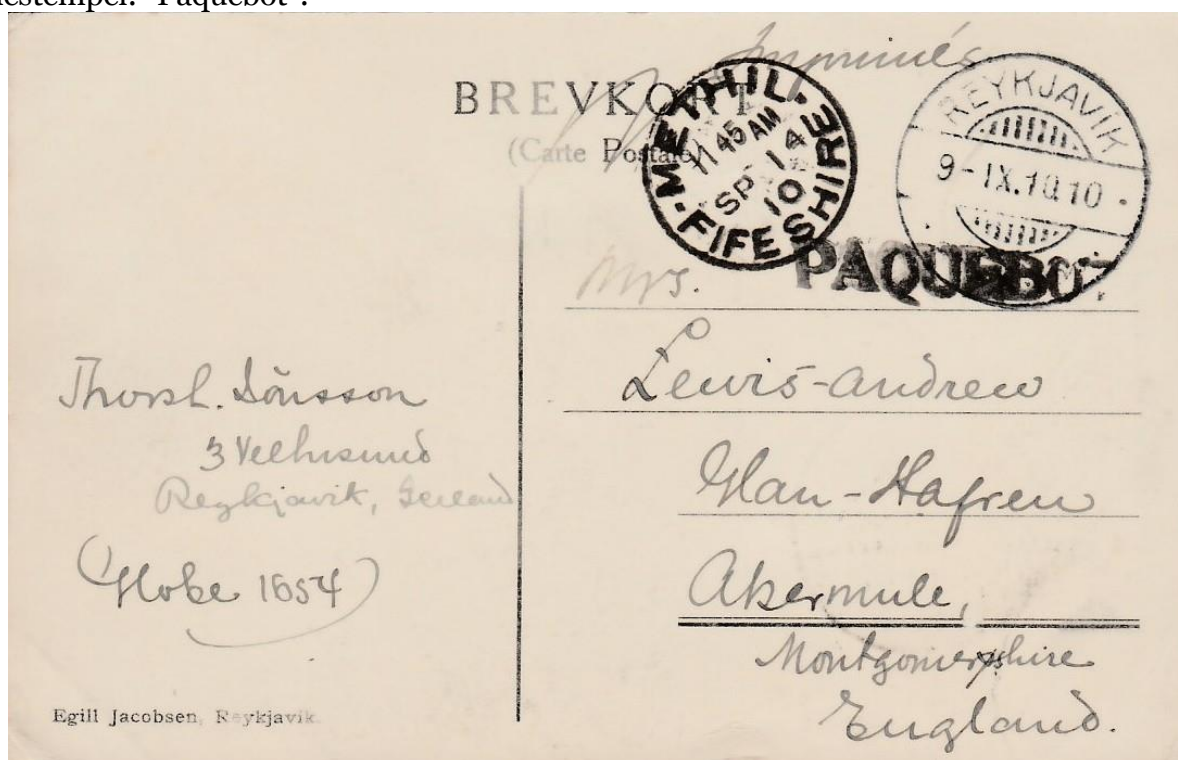 "Paquebot".
Imprimés
BREVKORT
(Carte Postale)
METHIL·FIFESHIRE
11 45 AM
SP 14
10
REYKJAVIK
9-IX.10 10
PAQUEBOT
Mrs.
Lewis-Andrew
Glan-Hafren
Abermule,
Montgomeryshire
England.
Thorsh. Jónsson
3
Reykjavik,
(Globe 1654)
Egill Jacobsen, Reykjavik.